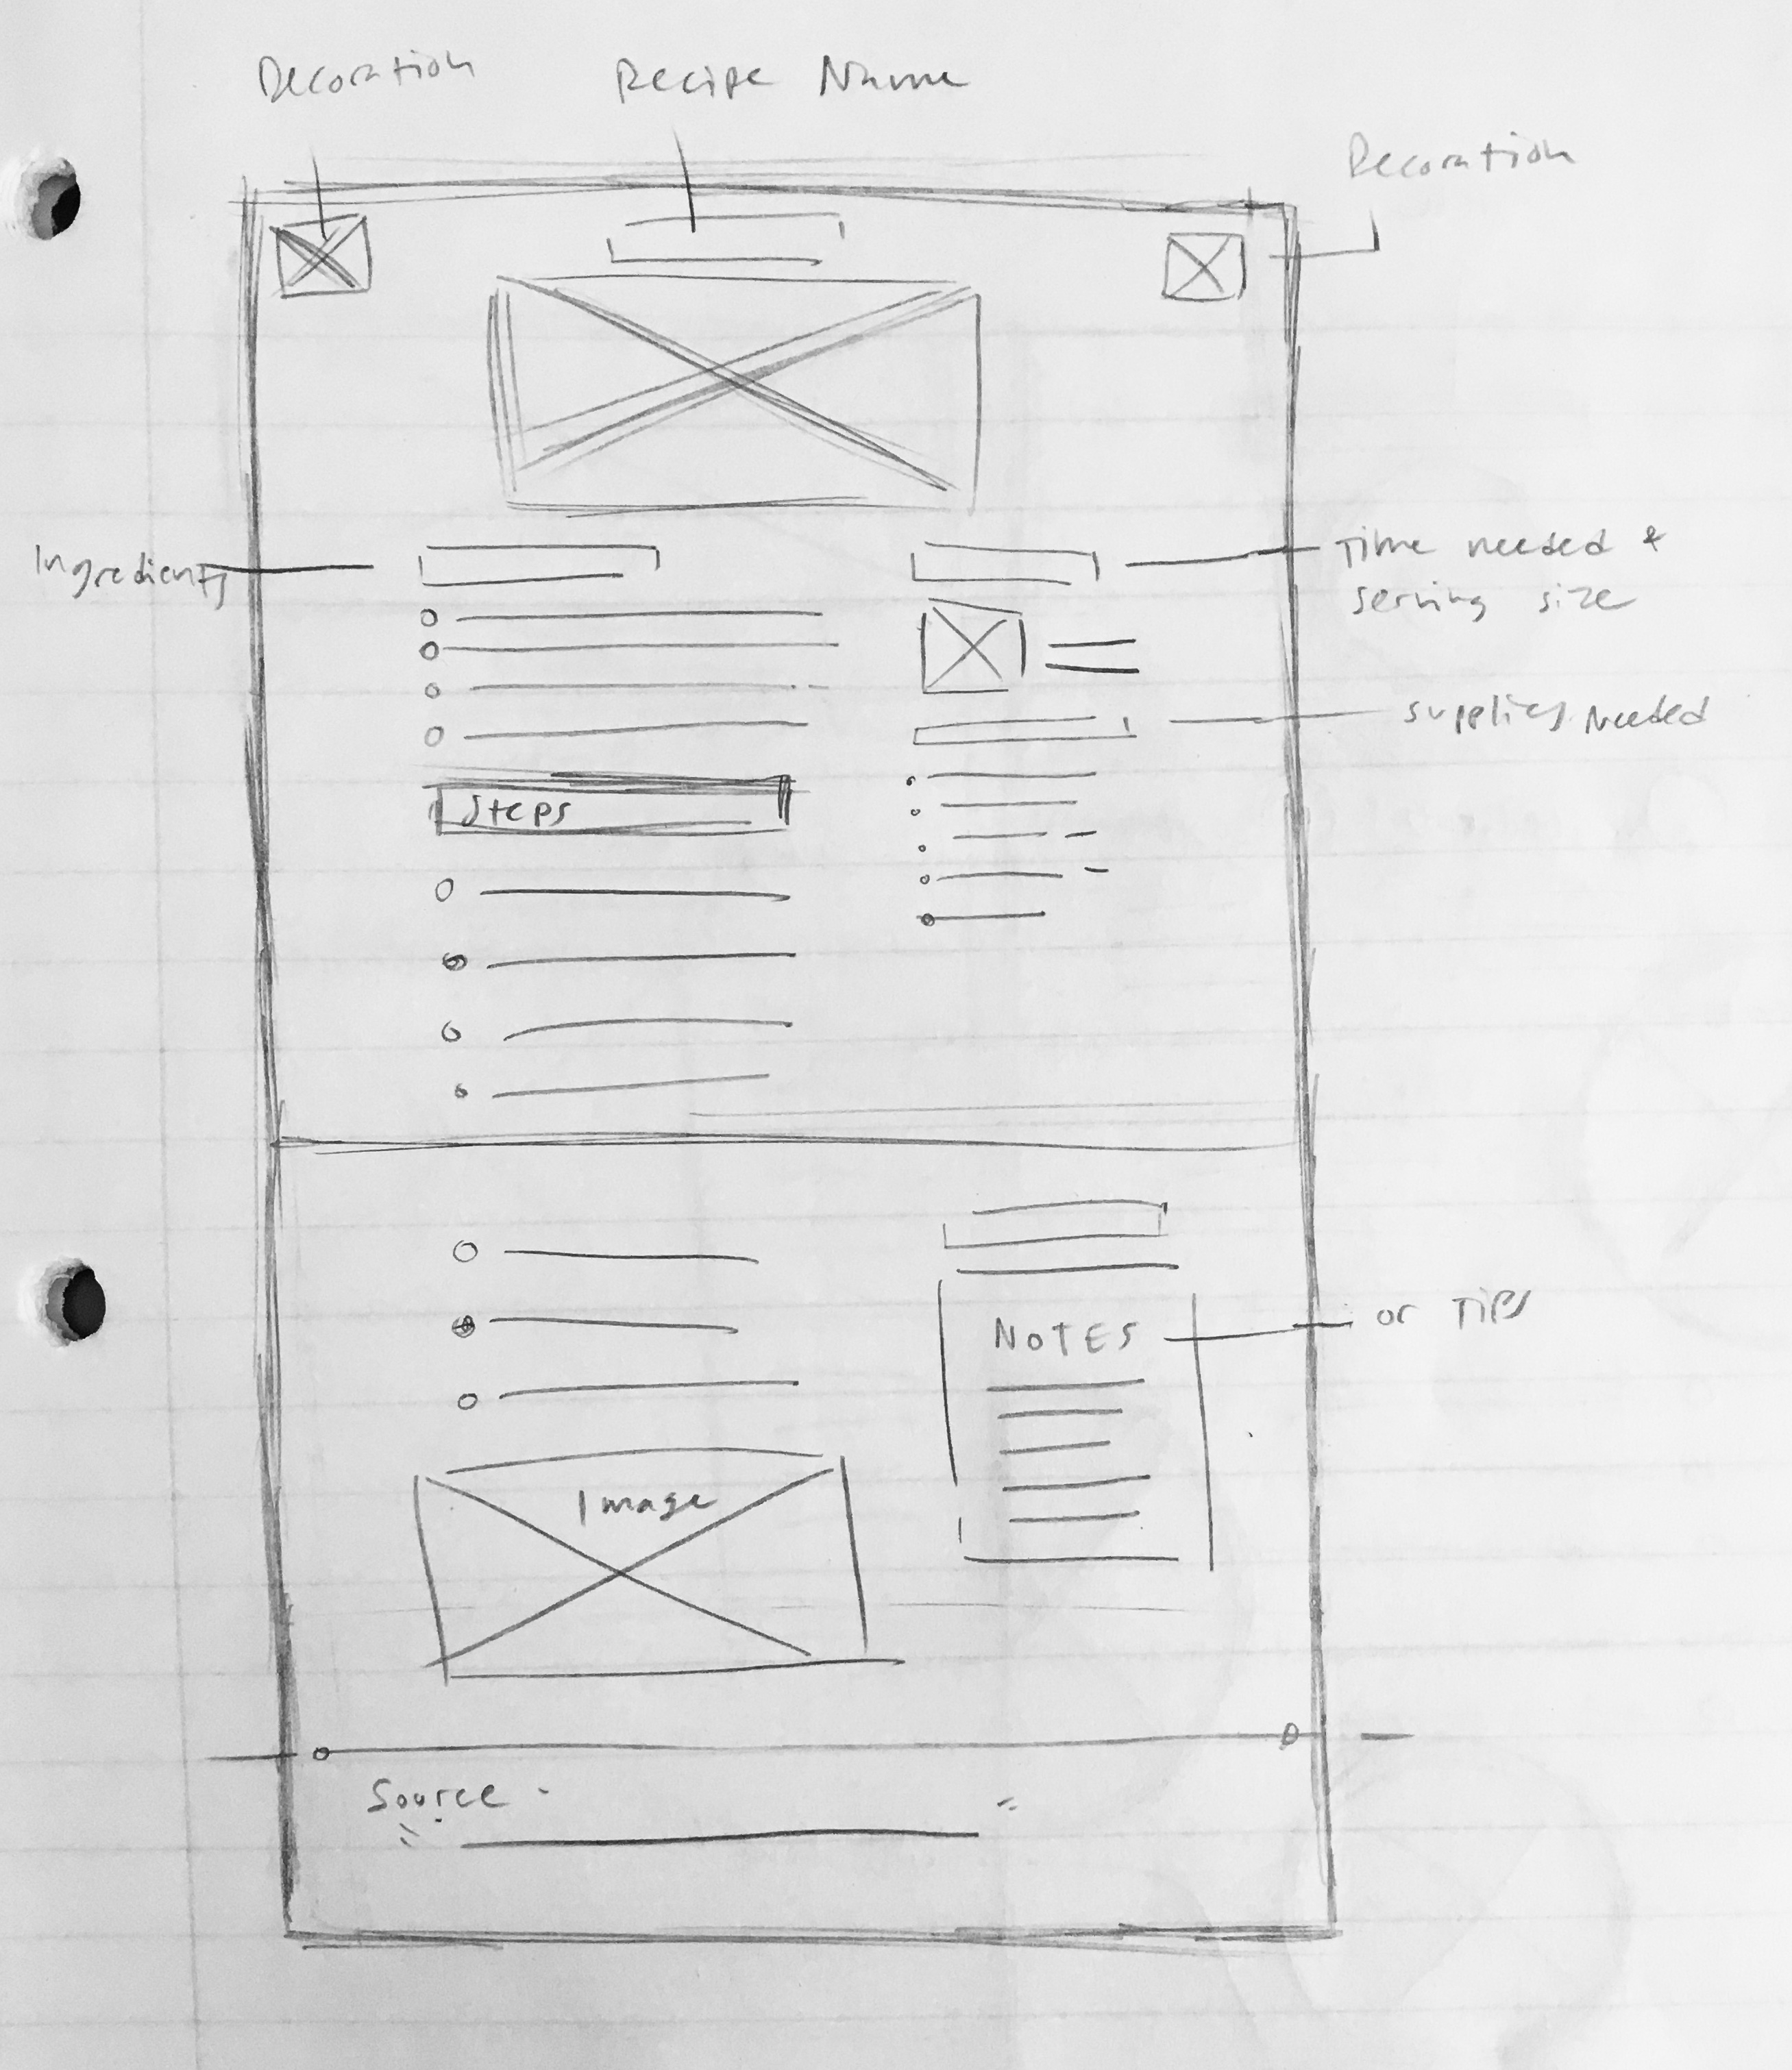 Decoration
Recipe Name
Decoration
Ingredients
Time needed &
serving size
Supplies Needed
Steps
NOTES
or TIPS
Image
Source -